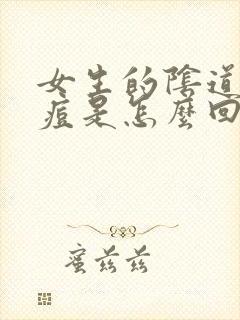 女生的陰道
痘是怎麼回
蜜茲茲